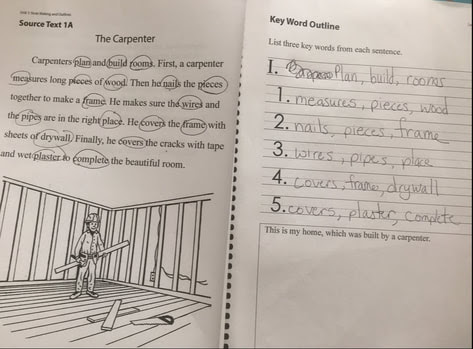 Source Text 1A
The Carpenter
Carpenters plan and build rooms. First, a carpenter
measures long pieces of wood. Then he nails the pieces
together to make a frame. He makes sure the wires and
the pipes are in the right place. He covers the frame with
sheets of drywall. Finally, he covers the cracks with tape
and wet plaster to complete the beautiful room.
Key Word Outline
List three key words from each sentence.
I. Plan, build, rooms
1. measures, pieces, wood
2. nails, pieces, frame
3. wires, pipes, place
4. covers, frame, drywall
5. covers, plaster, complete
This is my home, which was built by a carpenter.